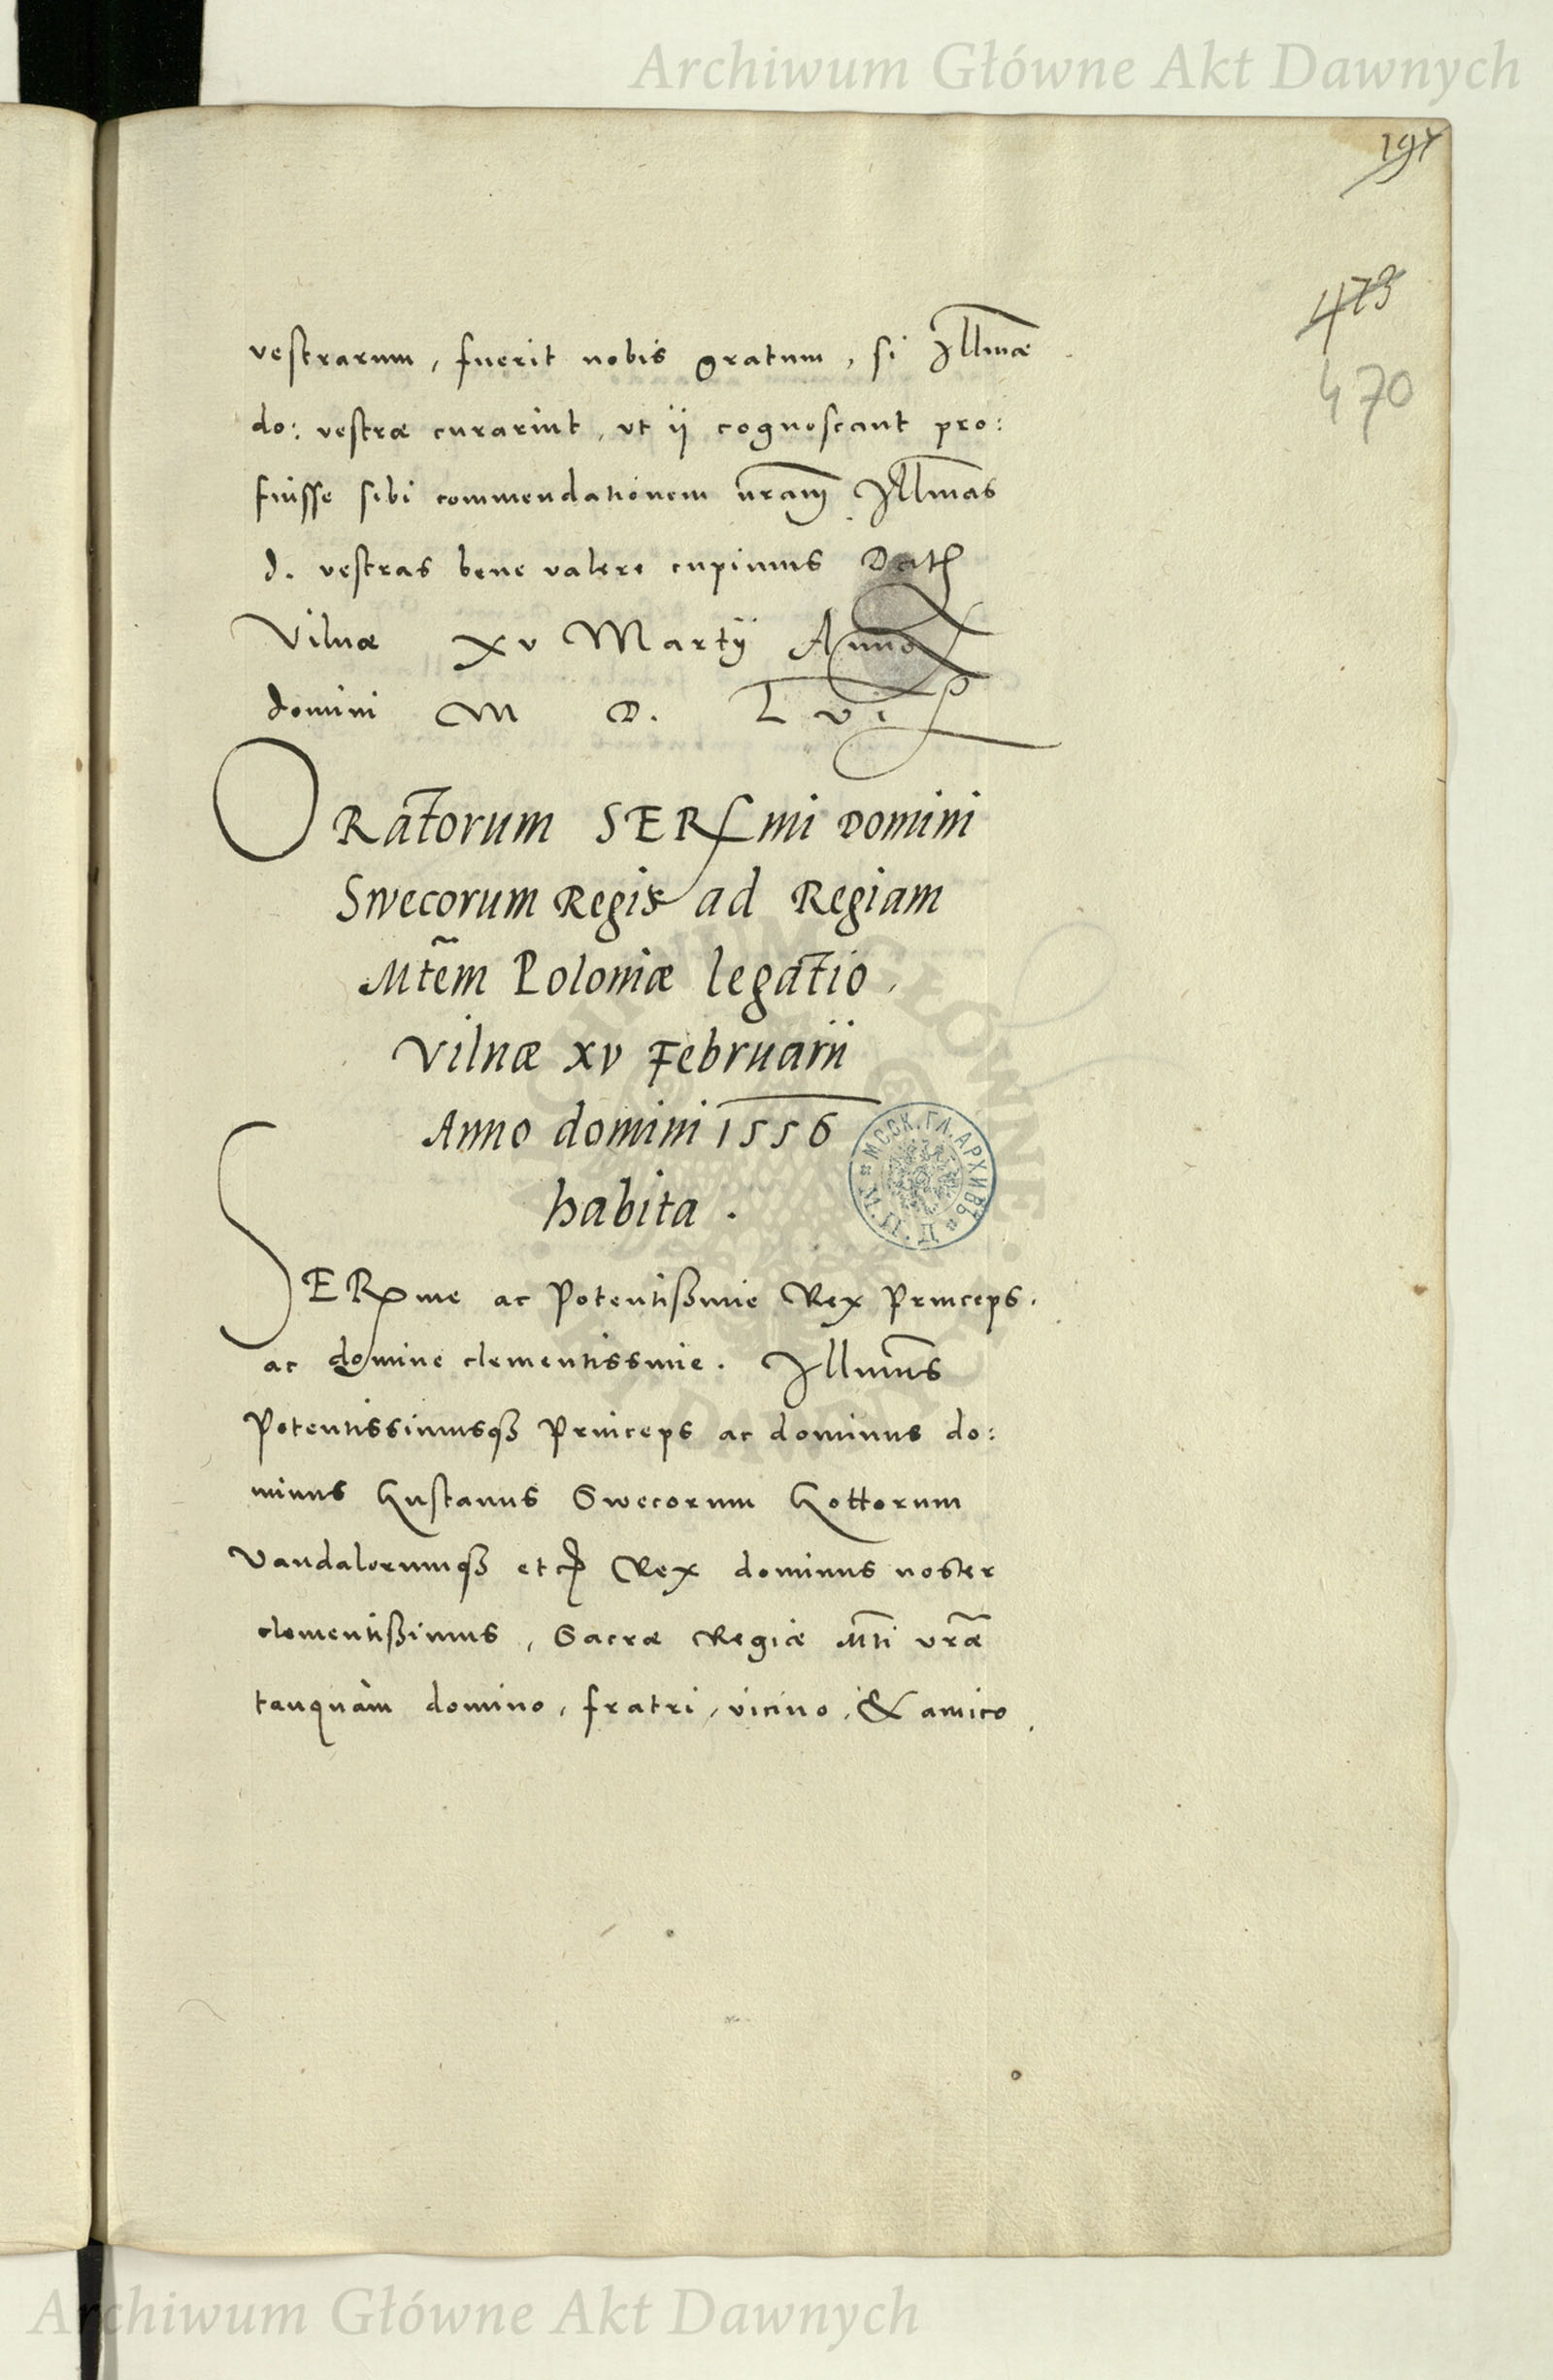 Archiwum Główne Akt Dawnych
197
473
470
vestrarum, fuerit nobis gratum, si Illmæ
do: vestræ curarint, vt ij cognoscant pro:
fuisse sibi commendationem nram Illmas
d. vestras bene valere cupimus Dat
Vilnæ xv Martij Anno
domini M D. L vi
ORatorum SERmi Domini
Swecorum Regis ad Regiam
Mtem Poloniæ legatio,
Vilnæ xv Februarii
Anno domini 1556
habita.
SERme ac Potentissimie Rex Princeps.
ac domine clementissimie. Illmus
Potentissimusqß Princeps ac dominus do:
minus Gustauus Swecorum Gottorum
Vandalorumqß etc Rex dominus noster
clementißimus, Sacræ Regiæ Mti vræ
tanquàm domino, fratri, vicino, & amico,
МССК. ГЛ. АРХИВЪ
Archiwum Główne Akt Dawnych